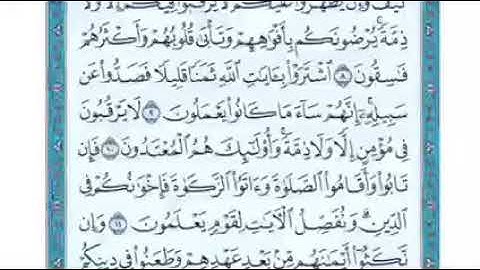 كَيْفَ وَإِن يَظْهَرُوا۟ عَلَيْكُمْ لَا يَرْقُبُوا۟ فِيكُمْ إِلًّا وَلَا
ذِمَّةً ۚ يُرْضُونَكُم بِأَفْوَٰهِهِمْ وَتَأْبَىٰ قُلُوبُهُمْ وَأَكْثَرُهُمْ
فَـٰسِقُونَ ٨ ٱشْتَرَوْا۟ بِـَٔايَـٰتِ ٱللَّهِ ثَمَنًا قَلِيلًا فَصَدُّوا۟ عَن
سَبِيلِهِۦٓ ۚ إِنَّهُمْ سَآءَ مَا كَانُوا۟ يَعْمَلُونَ ٩ لَا يَرْقُبُونَ
فِى مُؤْمِنٍ إِلًّا وَلَا ذِمَّةً ۚ وَأُو۟لَـٰٓئِكَ هُمُ ٱلْمُعْتَدُونَ ١٠ فَإِن
تَابُوا۟ وَأَقَامُوا۟ ٱلصَّلَوٰةَ وَءَاتَوُا۟ ٱلزَّكَوٰةَ فَإِخْوَٰنُكُمْ فِى
ٱلدِّينِ ۗ وَنُفَصِّلُ ٱلْـَٔايَـٰتِ لِقَوْمٍ يَعْلَمُونَ ١١ وَإِن
نَّكَثُوٓا۟ أَيْمَـٰنَهُم مِّنۢ بَعْدِ عَهْدِهِمْ وَطَعَنُوا۟ فِى دِينِكُمْ